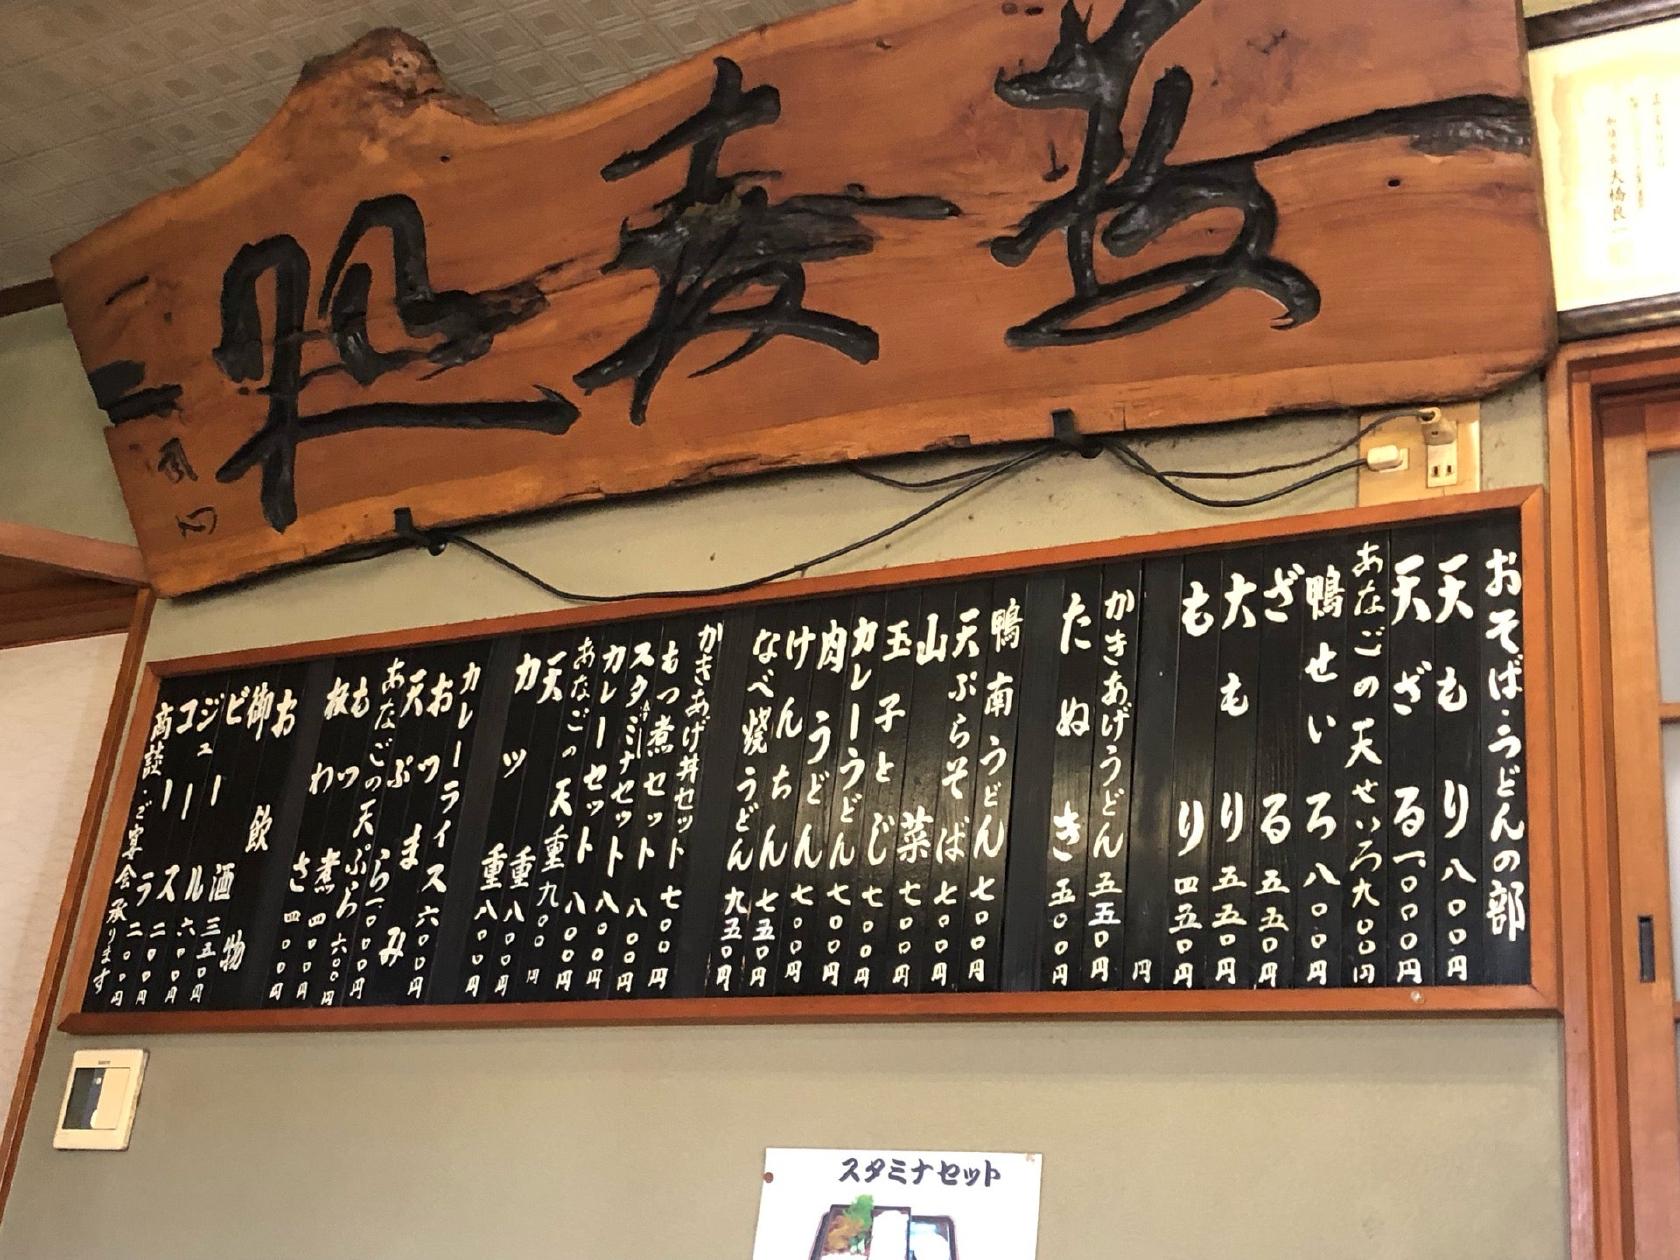 蕎麦処
おそば・うどんの部
天もり八〇〇円
天ざる一、〇〇〇円
あなごの天せいろ九〇〇円
鴨せいろ八〇〇円
ざる五五〇円
大もり五五〇円
もり四五〇円
円
かきあげうどん五五〇円
たぬき五〇〇円
鴨南うどん七〇〇円
天ぷらそば七〇〇円
山菜七〇〇円
玉子とじ七〇〇円
カレーうどん七〇〇円
肉うどん七〇〇円
けんちん七五〇円
なべ焼うどん九五〇円
かきあげ丼セット七〇〇円
もつ煮セット八〇〇円
スタミナセット八〇〇円
カレーセット八〇〇円
あなごの天重九〇〇円
天重八〇〇円
カツ重八〇〇円
カレーライス六〇〇円
おつまみ
天ぷら一〇〇〇円
あなごの天ぷら六〇〇円
もつ煮四〇〇円
板わさ四〇〇円
お飲物
御酒三五〇円
ビール六〇〇円
ジュース二〇〇円
コーラ二〇〇円
商談・ご宴会承ります
スタミナセット
大橋良一